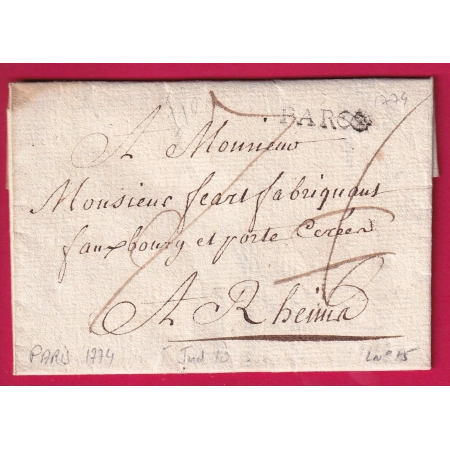 1774
A Monsieur
Monsieur feart fabriquant
fauxbourg et porte Cerées
A Rheims
PARIS 1774
Ind 10
Ln° 15